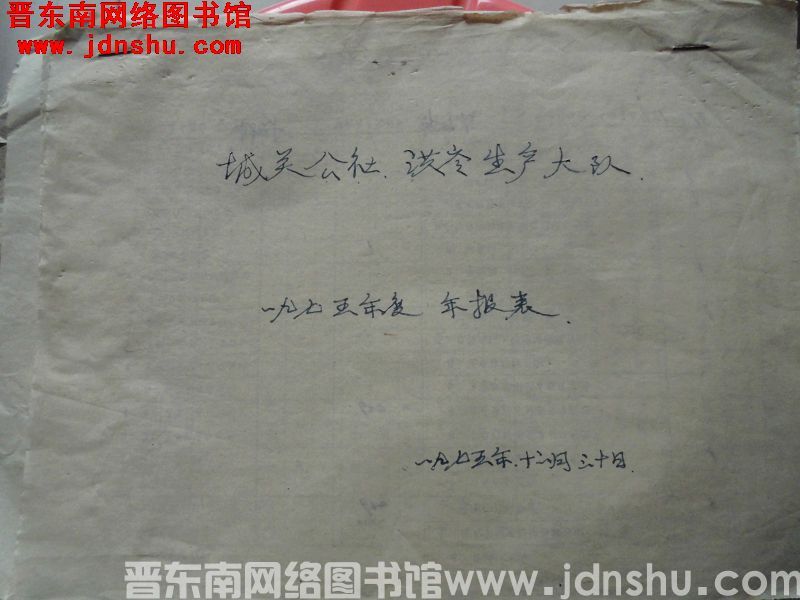 晋东南网络图书馆
www.jdnshu.com
城关公社 洪岺生产大队
一九七五年度 年报表
一九七五年十二月三十日
晋东南网络图书馆www.jdnshu.com